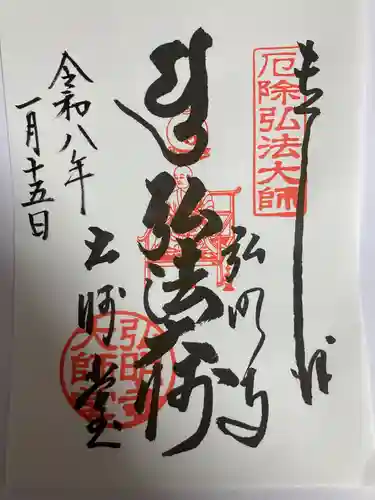 奉拝
厄除弘法大師
弘法大師
弘明寺
大師堂
令和八年
一月十五日